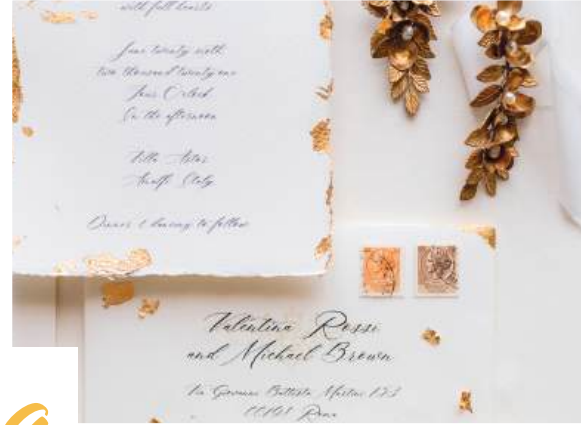 with full hearts
June twenty sixth
two thousand twenty one
four O'clock
In the afternoon
Villa Astor
Amalfi Italy
Dinner & dancing to follow
Valentina Rossi
and Michael Brown
Via Giovanni Battista Martini
Roma